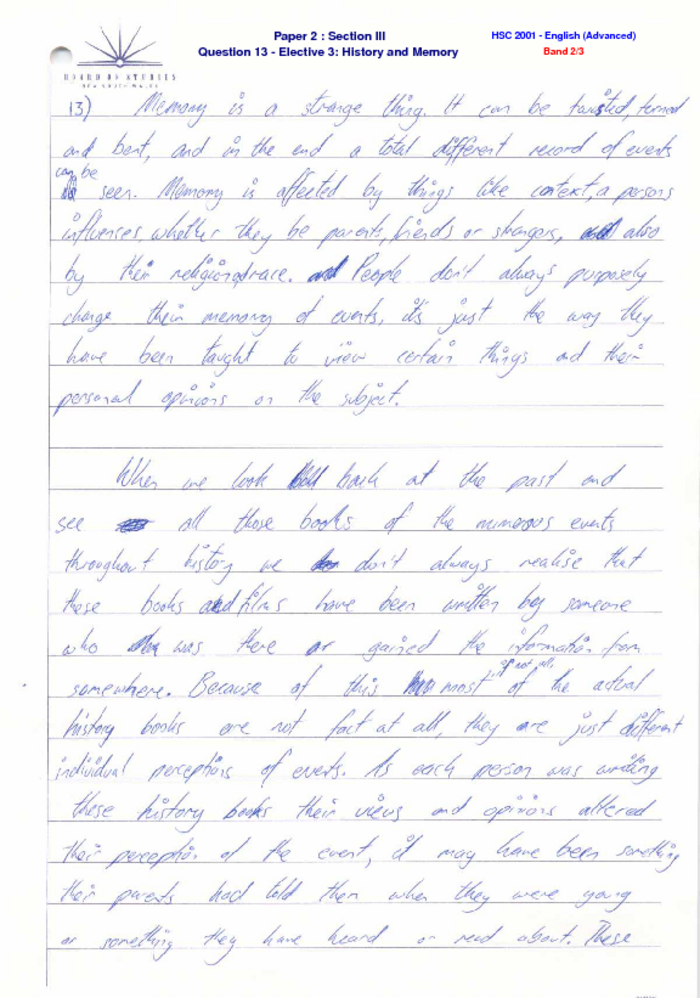 Paper 2 : Section III
Question 13 - Elective 3: History and Memory
HSC 2001 - English (Advanced)
Band 2/3
BOARD OF STUDIES
NEW SOUTH WALES
13) Memory is a strange thing. It can be twisted, turned
and bent, and in the end a total different record of events
can be
seen. Memory is affected by things like context, a persons
influences, whether they be parents, friends or strangers, also
by their religion and race. People don't always purposely
change their memory of events, it's just the way they
have been taught to view certain things and their
personal opinions on the subject.
When we look back at the past and
see all those books of the numerous events
throughout history we don't always realise that
these books and films have been written by someone
who was there or gained the information from
somewhere. Because of this most if not all, of the actual
history books are not fact at all, they are just different
individual perceptions of events. As each person was writing
these history books their views and opinions altered
their perception of the event, it may have been something
their parents had told them when they were young
or something they have heard or read about. These